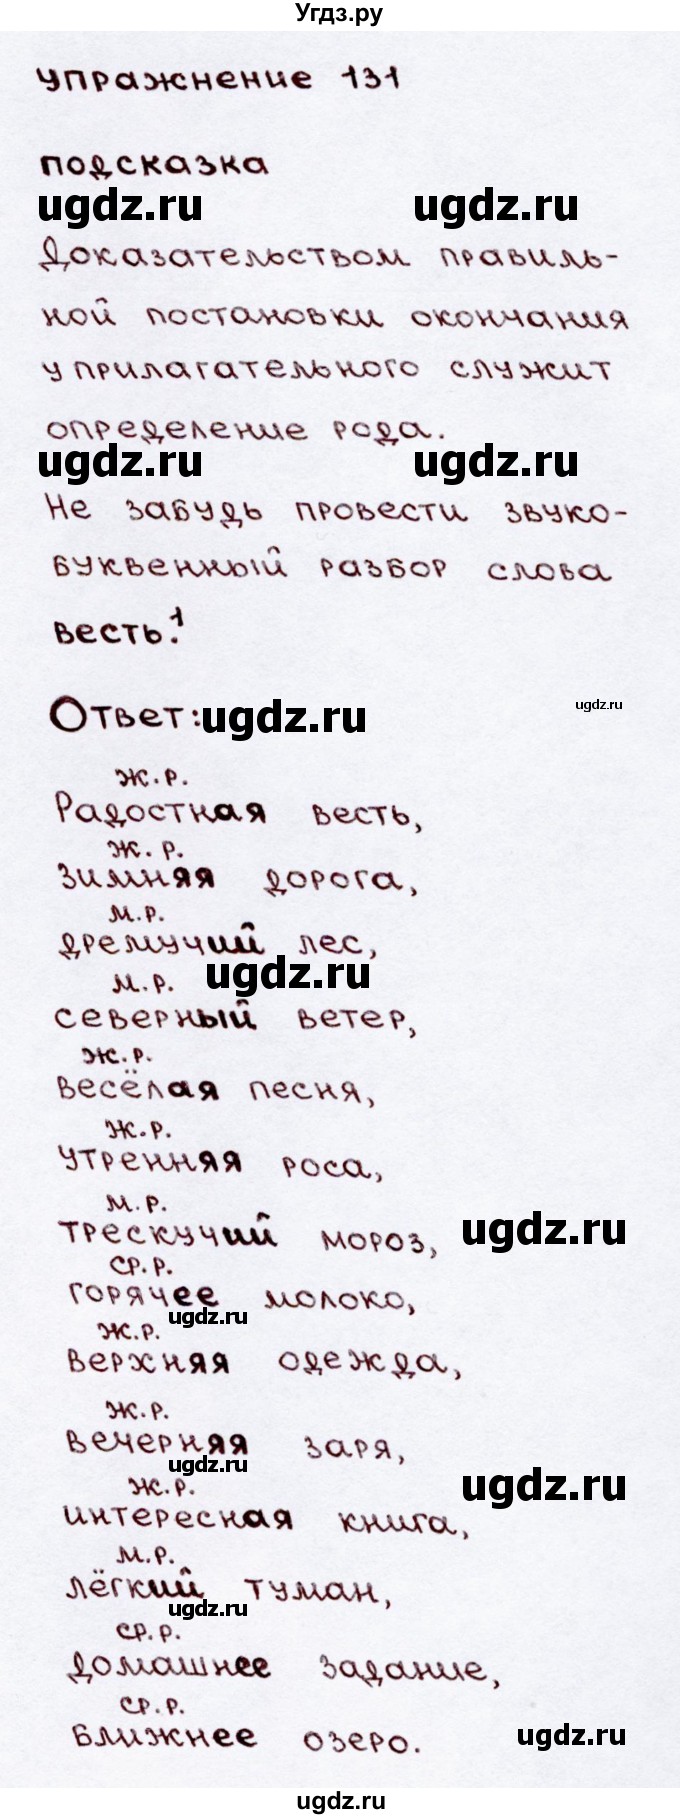 Угдз.ру
упражнение 131
подсказка
ugdz.ru ugdz.ru
Доказательством правиль-
ной постановки окончания
у прилагательного служит
определение рода.
ugdz.ru ugdz.ru
Не забудь провести звуко-
буквенный разбор слова
весть.¹
Ответ: ugdz.ru ugdz.ru
ж.р.
Радостная весть,
ж.р.
зимняя дорога,
м.р.
дремучий лес,
м.р. ugdz.ru
северный ветер,
ж.р.
весёлая песня,
ж.р.
утренняя роса,
м.р.
трескучий мороз, ugdz.ru
ср.р.
горячее молоко,
ugdz.ru
ж.р.
верхняя одежда,
ж.р.
вечерняя заря,
ugdz.ru ugdz.ru
ж.р.
интересная книга,
м.р.
лёгкий туман,
ugdz.ru
ср.р.
домашнее задание,
ср.р.
ближнее озеро. ugdz.ru
ugdz.ru